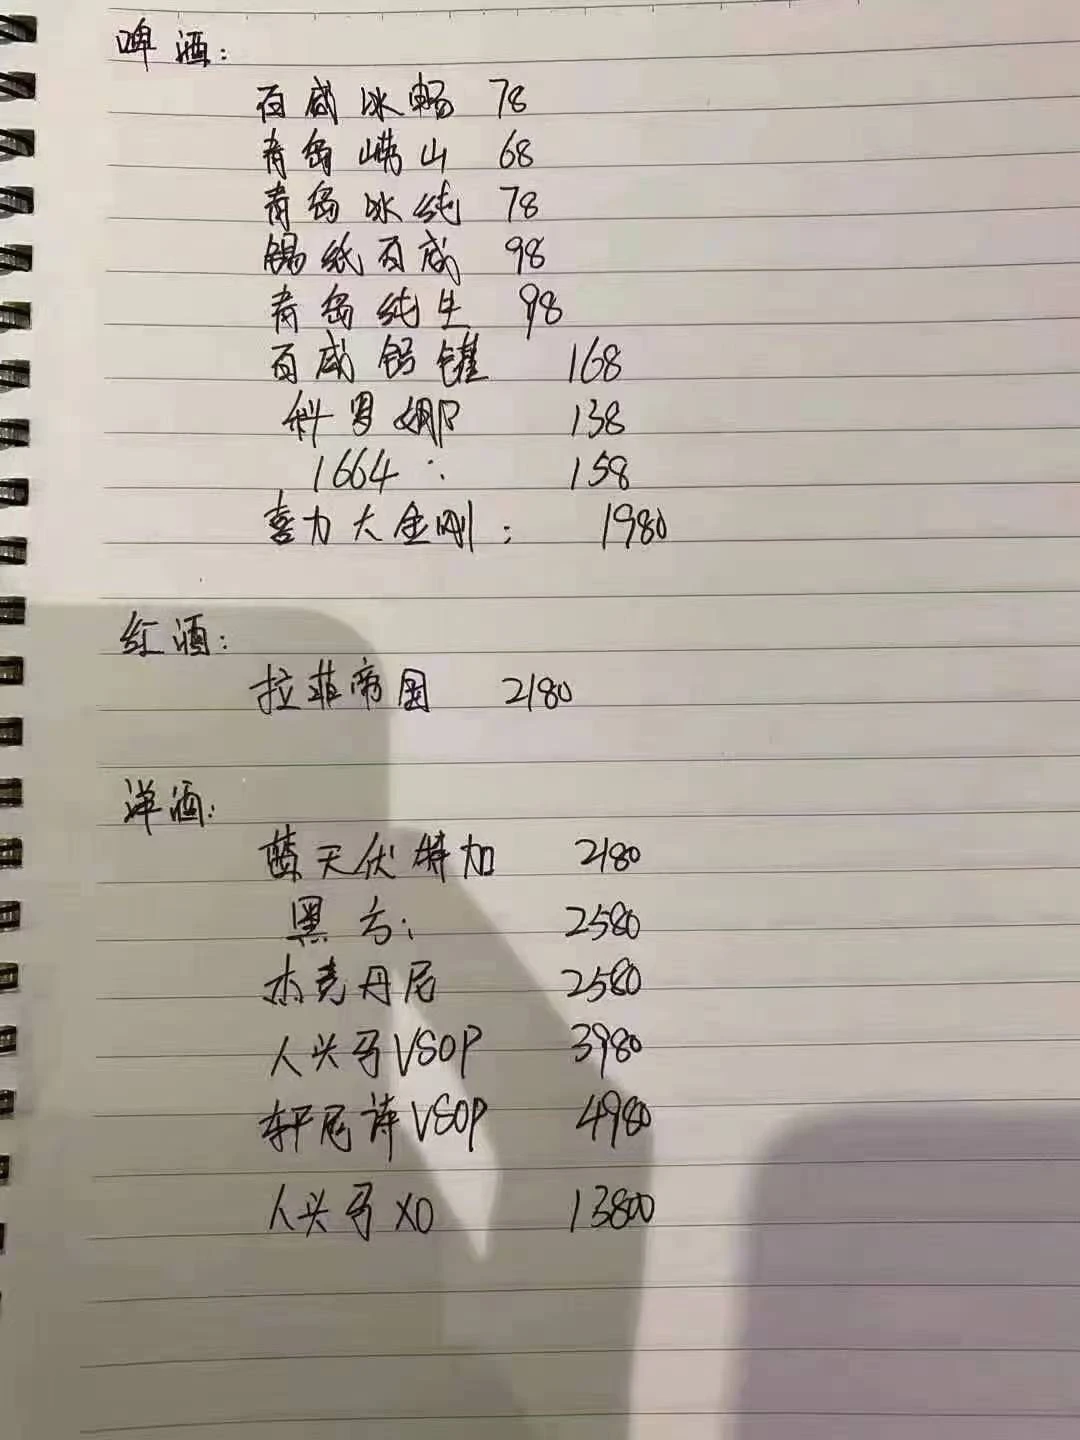 啤酒:
百威冰畅 78
青岛崂山 68
青岛冰纯 78
锡纸百威 98
青岛纯生 98
百威铝罐 168
科罗娜 138
1664: 158
喜力大金刚: 1980
红酒:
拉菲帝国 2180
洋酒:
蓝天伏特加 2180
黑方: 2580
杰克丹尼 2580
人头马VSOP 3980
轩尼诗VSOP 4980
人头马XO 13800